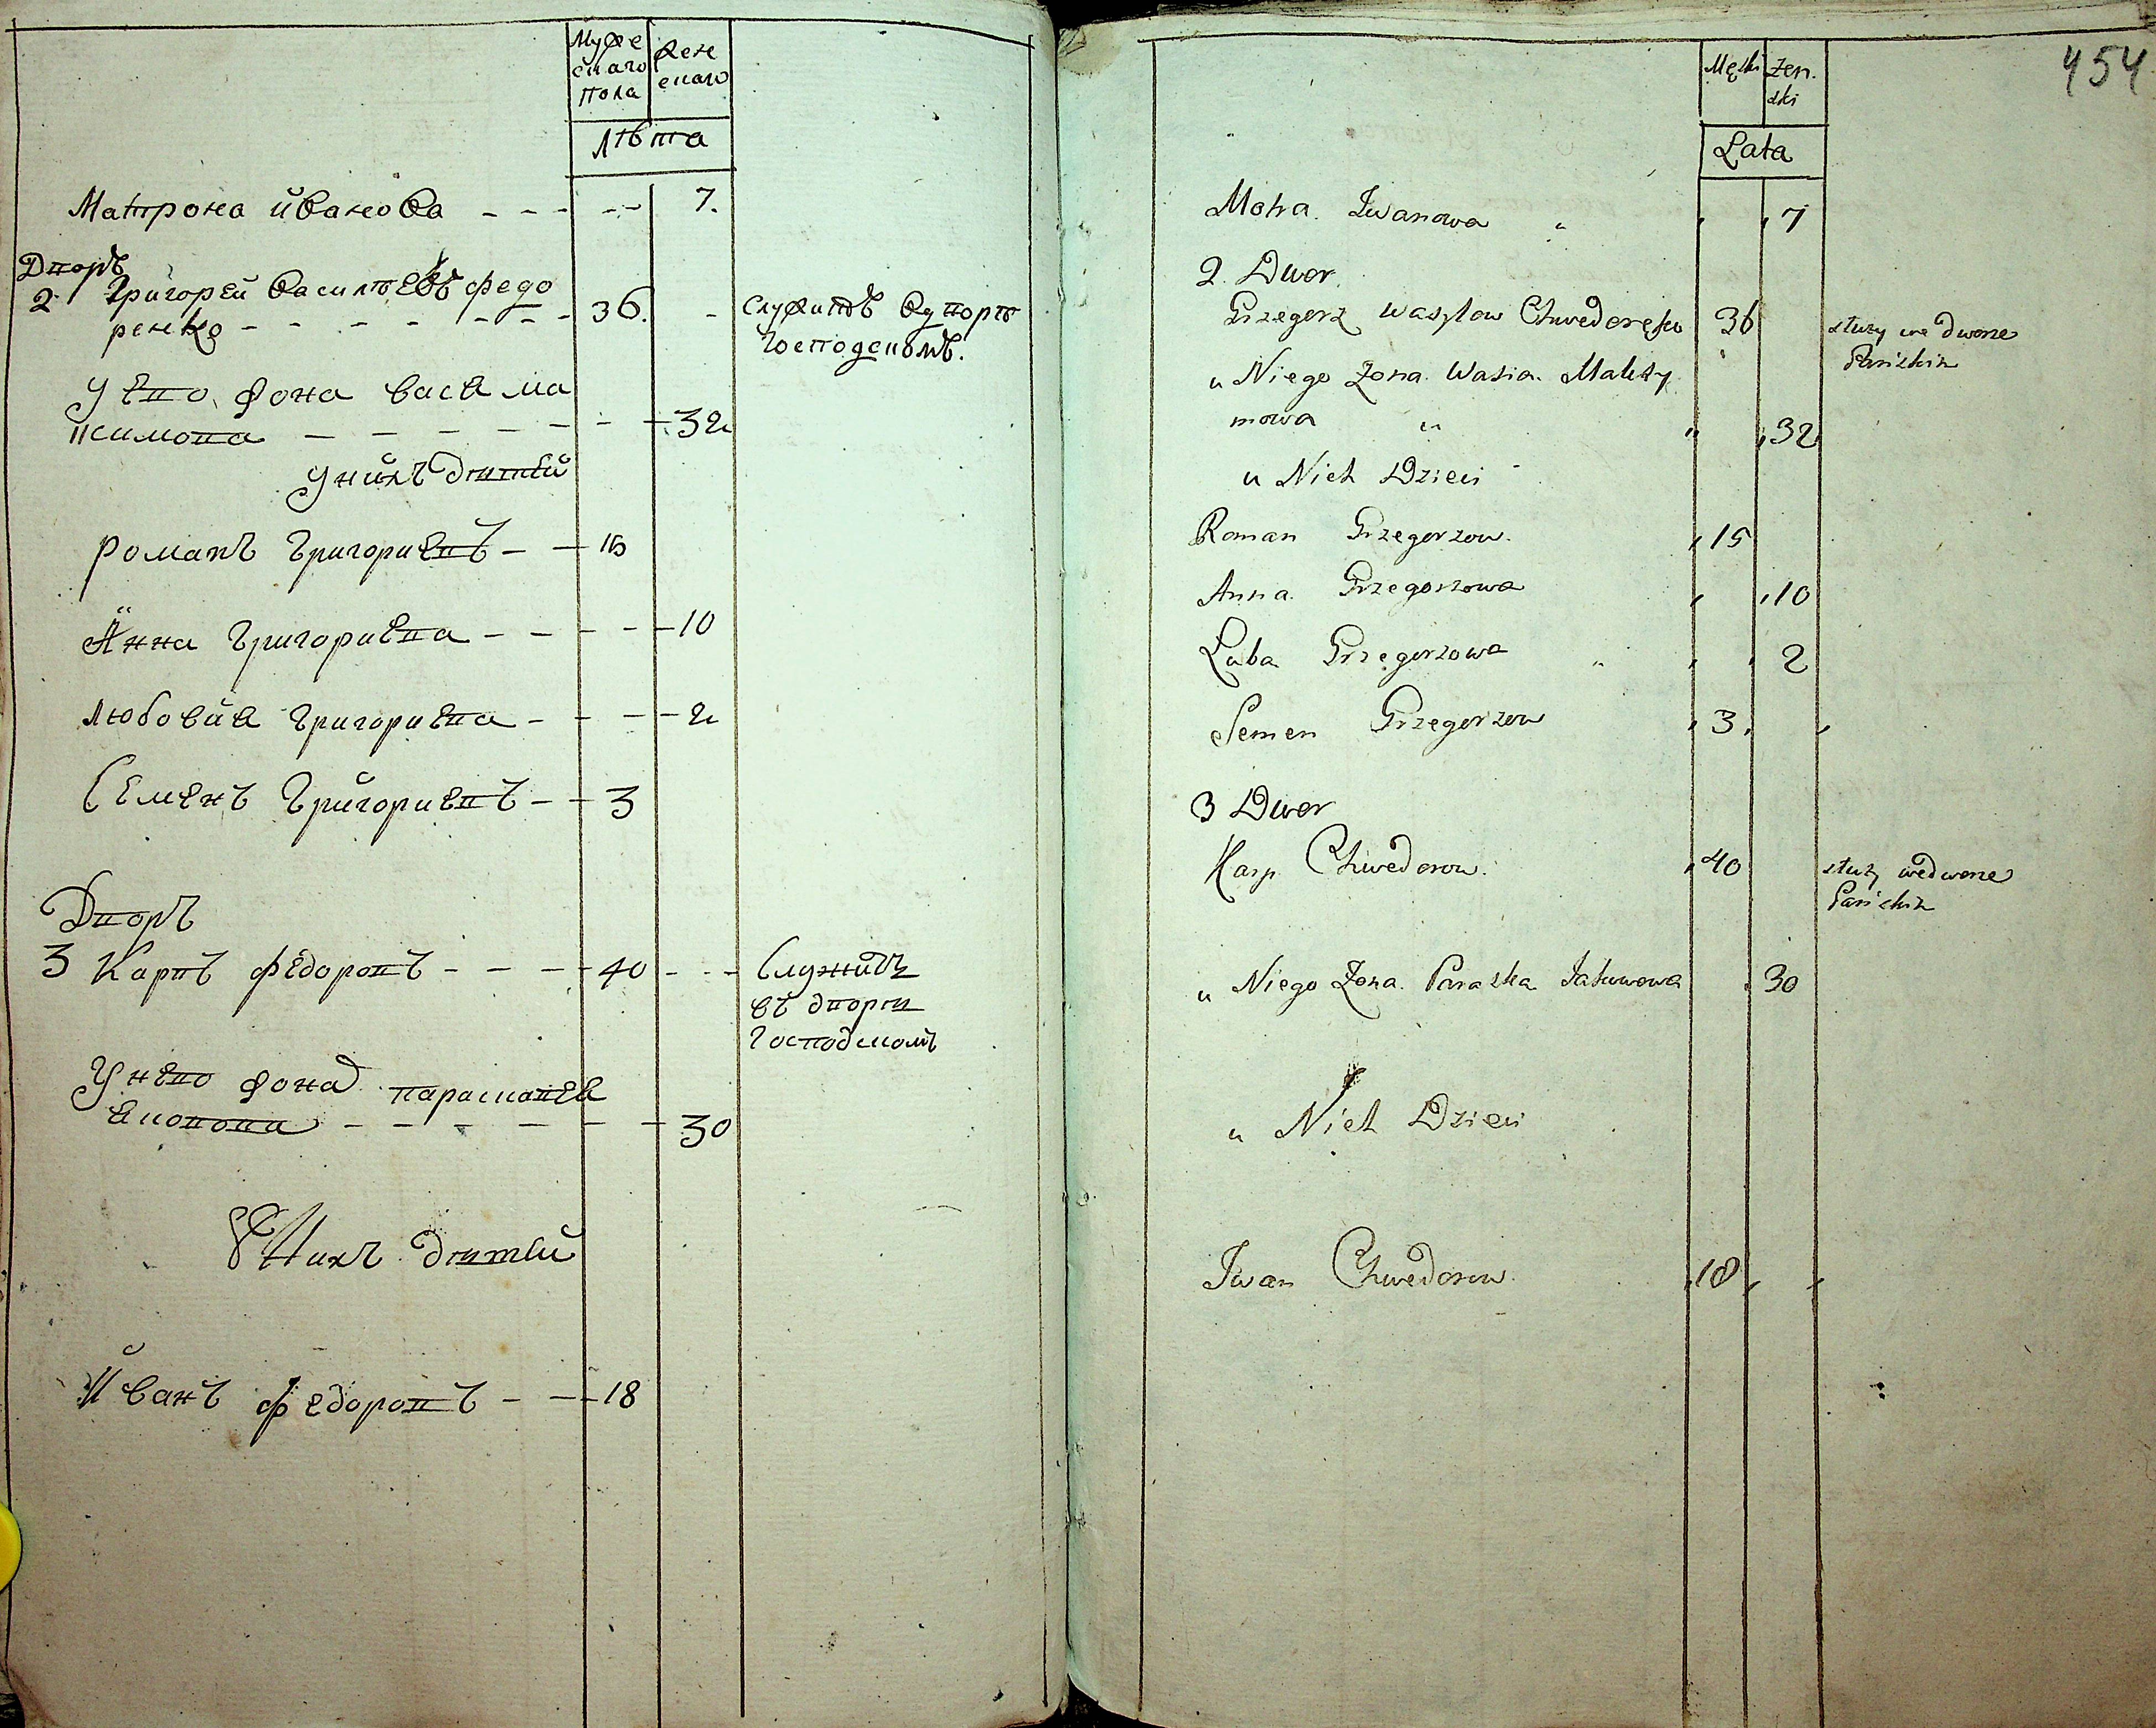 Муже
скаго
пола
Жен
скаго
Лѣта
Матрона Иванова - - - - - 7.
Дворъ
2 Григорей Васильевъ Федо
ренко - - - - - - - 36. - Служитъ въ дворѣ
Господскомъ.
У Ево жона Васа Ма
ксимова - - - - - - - 32
У нихъ Дѣтей
Романъ Григориевъ - - 15
Анна Григориева - - - - - 10
Любовия Григориева - - - - 2
Семенъ Григориевъ - - 3
Дворъ
3 Карпъ Федоровъ - - - - 40 - - - Служитъ
въ дворѣ
Господскомъ
У нево жона Парасковея
Яковова - - - - - - - 30
У Нихъ Дѣтей
Иванъ Федоровъ - - - 18
454
Męski
żen.
ski
Lata
Motra Iwanowa 7
2. Dwor.
Grzegorz Wasylow Chwedoreńko 36 służy we dworze
Pańskim
u Niego Żona Wasia Maksy
mowa 32
u Nich Dzieci
Roman Grzegorzow. 15
Anna Grzegorzowa 10
Luba Grzegorzowa 2
Semen Grzegorzow 3
3 Dwor
Karp Chwedorow. 40 służy we dworze
Pańskim
u Niego Żona Paraska Jakuwowa 30
u Nich Dzieci
Iwan Chwedorow. 18